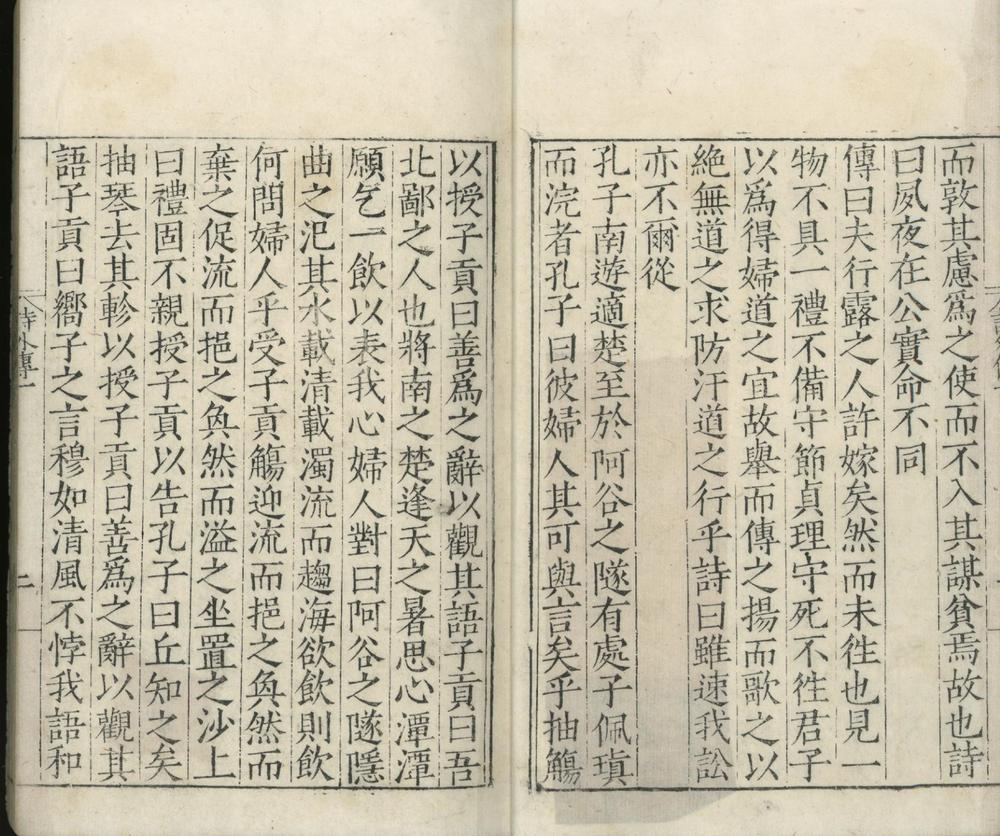 而敦其慮爲之使而不入其謀貧焉故也詩
曰夙夜在公實命不同
傳曰夫行露之人許嫁矣然而未徃也見一
物不具一禮不備守節貞理守死不徃君子
以爲得婦道之宜故舉而傳之揚而歌之以
絶無道之求防汙道之行乎詩曰雖速我訟
亦不爾從
孔子南遊適楚至於阿谷之隧有處子佩瑱
而浣者孔子曰彼婦人其可與言矣乎抽觴
以授子貢曰善爲之辭以觀其語子貢曰吾
北鄙之人也將南之楚逢天之暑思心潭潭
願乞一飲以表我心婦人對曰阿谷之隧隱
曲之汜其水載清載濁流而趨海欲飲則飲
何問婦人乎受子貢觴迎流而挹之奐然而
棄之促流而挹之奐然而溢之坐置之沙上
曰禮固不親授子貢以告孔子曰丘知之矣
抽琴去其軫以授子貢曰善爲之辭以觀其
語子貢曰嚮子之言穆如清風不悖我語和
詩外傳一
二